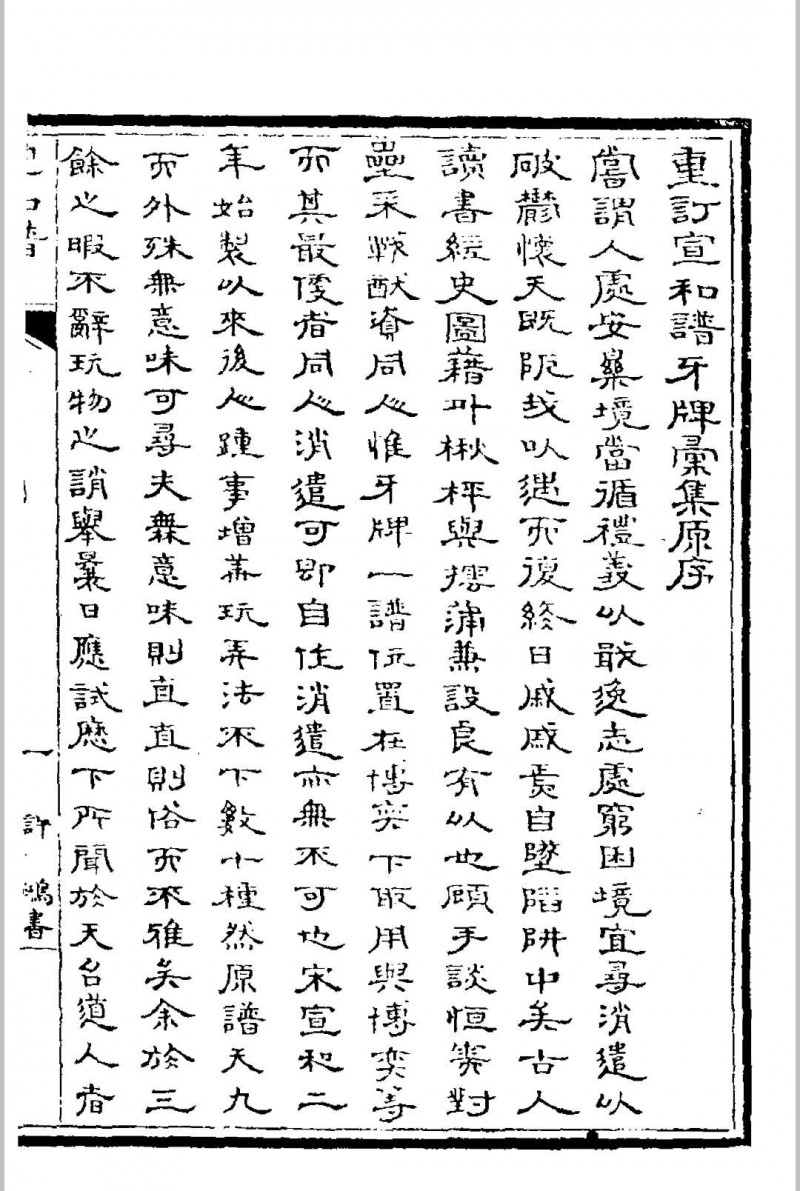 重訂宣和譜牙牌彙集原序
嘗謂人處安樂境當循禮義以戢逸志處窮困境宜尋消遣以
破鬱懷天既阨我以遇而復終日戚戚焉自墜陷阱中矣古人
讀書經史圖藉外楸枰與摴蒲兼設良有以也顧手談恒劳對
壘采戰猷資同人惟牙牌一譜位置在博奕下取用與博奕等
而其最優者同人消遣可即自住消遣亦無不可也宋宣和二
年始製以來後人踵事增華玩弄法不下數十種然原譜天九
而外殊無意味可尋夫無意味則直直則俗而不雅矣余於三
餘之暇不辭玩物之誚舉曩日應試歷下所聞於天台道人者
一
許
鴻書